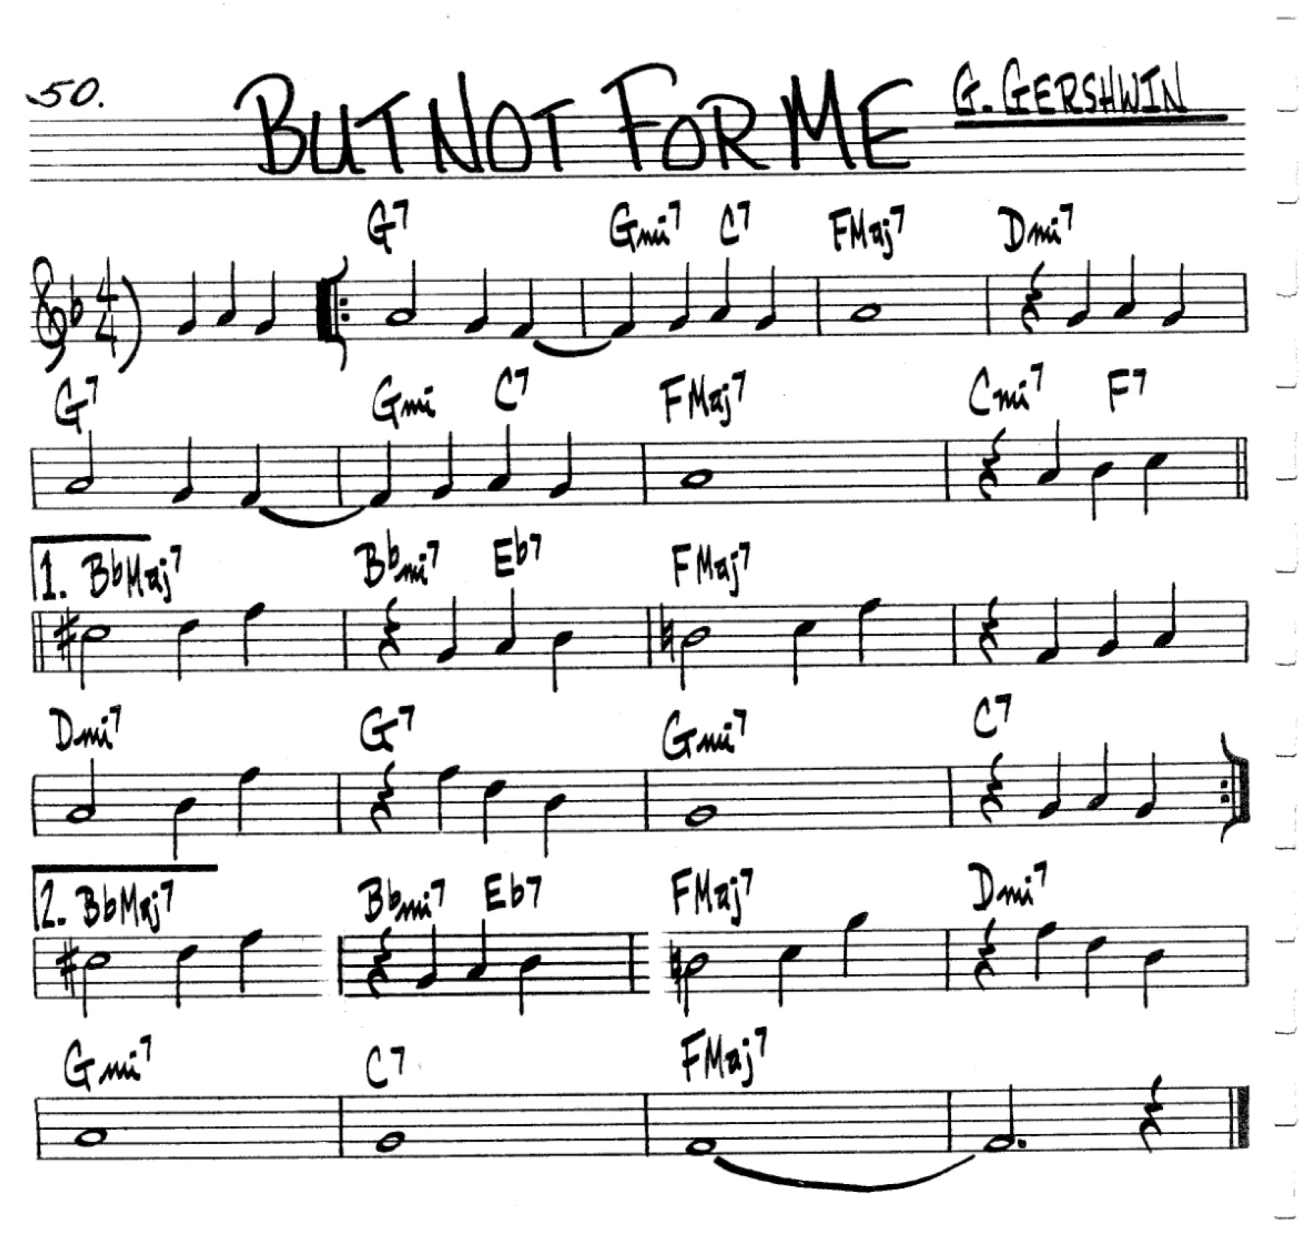 50. BUT NOT FOR ME G. GERSHWIN
G7 Gmi7 C7 FMaj7 Dmi7
4/4
G7 Gmi C7 FMaj7 Cmi7 F7
1. BbMaj7 Bbmi7 Eb7 FMaj7
Dmi7 G7 Gmi7 C7
2. BbMaj7 Bbmi7 Eb7 FMaj7 Dmi7
Gmi7 C7 FMaj7